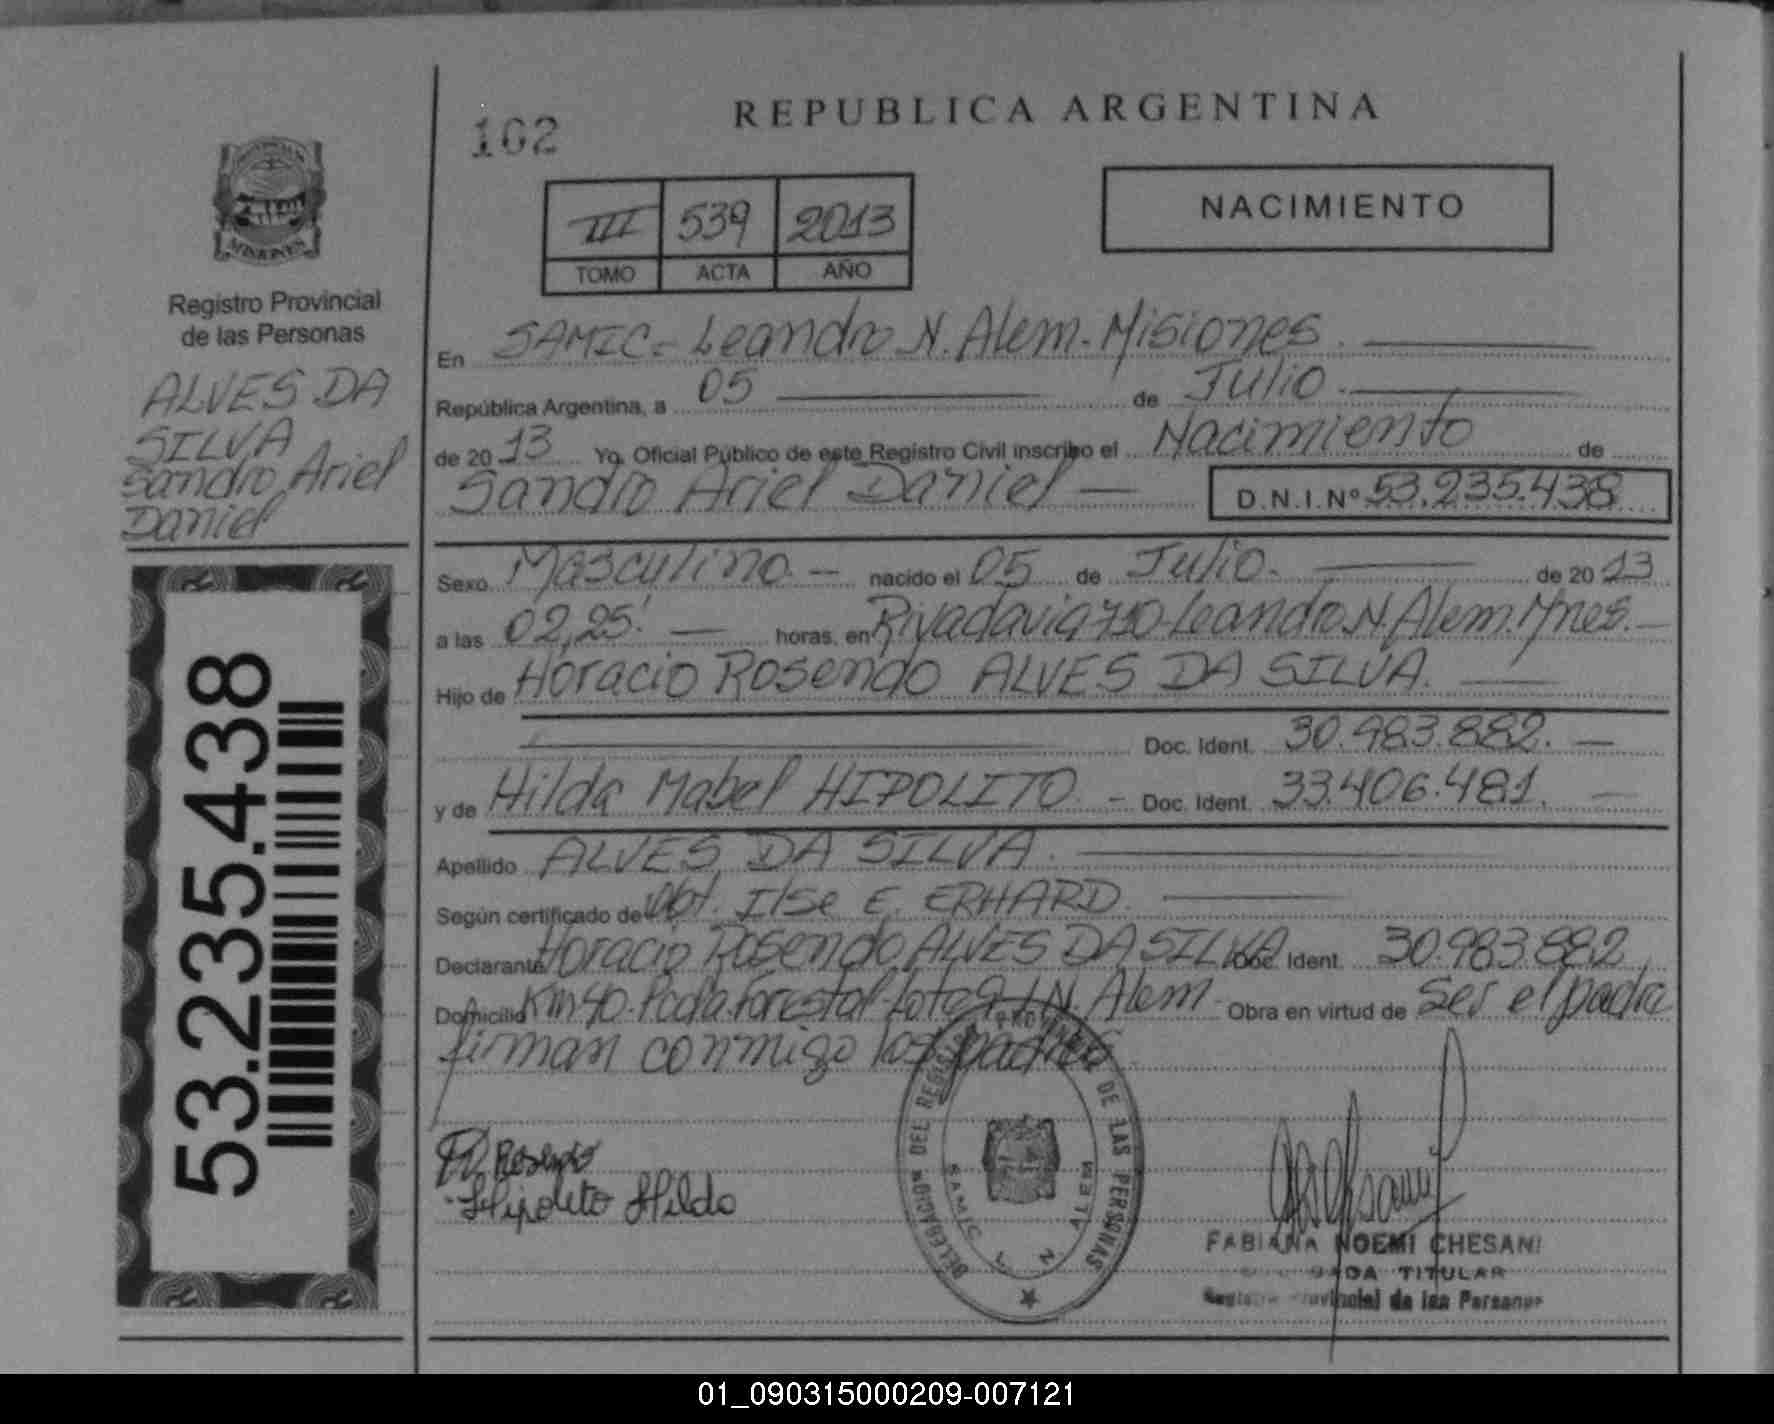 102
REPUBLICA ARGENTINA
MISIONES
Registro Provincial
de las Personas
ALVES DA
SILVA
Sandro Ariel
Daniel
53.235.438
III 539 2013
TOMO ACTA AÑO
NACIMIENTO
En SAMIC - Leandro N. Alem - Misiones
República Argentina, a 05 de Julio
de 2013 Yo, Oficial Público de este Registro Civil inscribo el Nacimiento de
Sandro Ariel Daniel — D.N.I.Nº 53.235.438
Sexo Masculino. — nacido el 05 de Julio. de 2013
a las 02,25' — horas, en Rivadavia 710 - Leandro N. Alem. Mnes. —
Hijo de Horacio Rosendo ALVES DA SILVA.
Doc. Ident. 30.983.882. —
y de Hilda Mabel HIPOLITO - Doc. Ident. 33.406.481. —
Apellido ALVES DA SILVA.
Según certificado de Obt. Ilse E. ERHARD.
Declarante Horacio Rosendo ALVES DA SILVA Doc. Ident. 30.983.882
Domicilio Km 40. Pcda. Forestal - Lote 9 - L.N. Alem - Obra en virtud de Ser el padre
firman conmigo los padres.
Rosendo
Hipolito Hilda
DELEGACION DEL REGISTRO PROVINCIAL DE LAS PERSONAS
SAMIC L N ALEM
FABIANA NOEMI CHESANI
TITULAR
Registro Provincial de las Personas
01_090315000209-007121